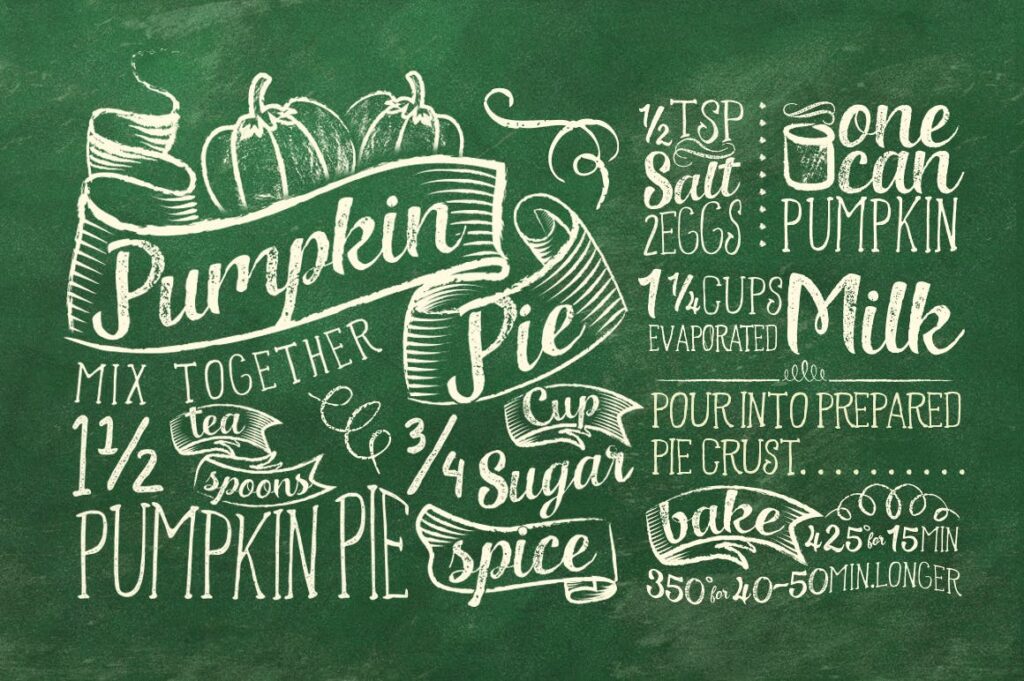 Pumpkin
Pie
MIX TOGETHER
1 1/2 tea spoons
3/4 Cup Sugar
PUMPKIN PIE spice
1/2 TSP
Salt
2 EGGS
one
can
PUMPKIN
1 1/4 CUPS
EVAPORATED Milk
POUR INTO PREPARED
PIE CRUST..........
bake 425° for 15 MIN
350° for 40-50 MIN. LONGER